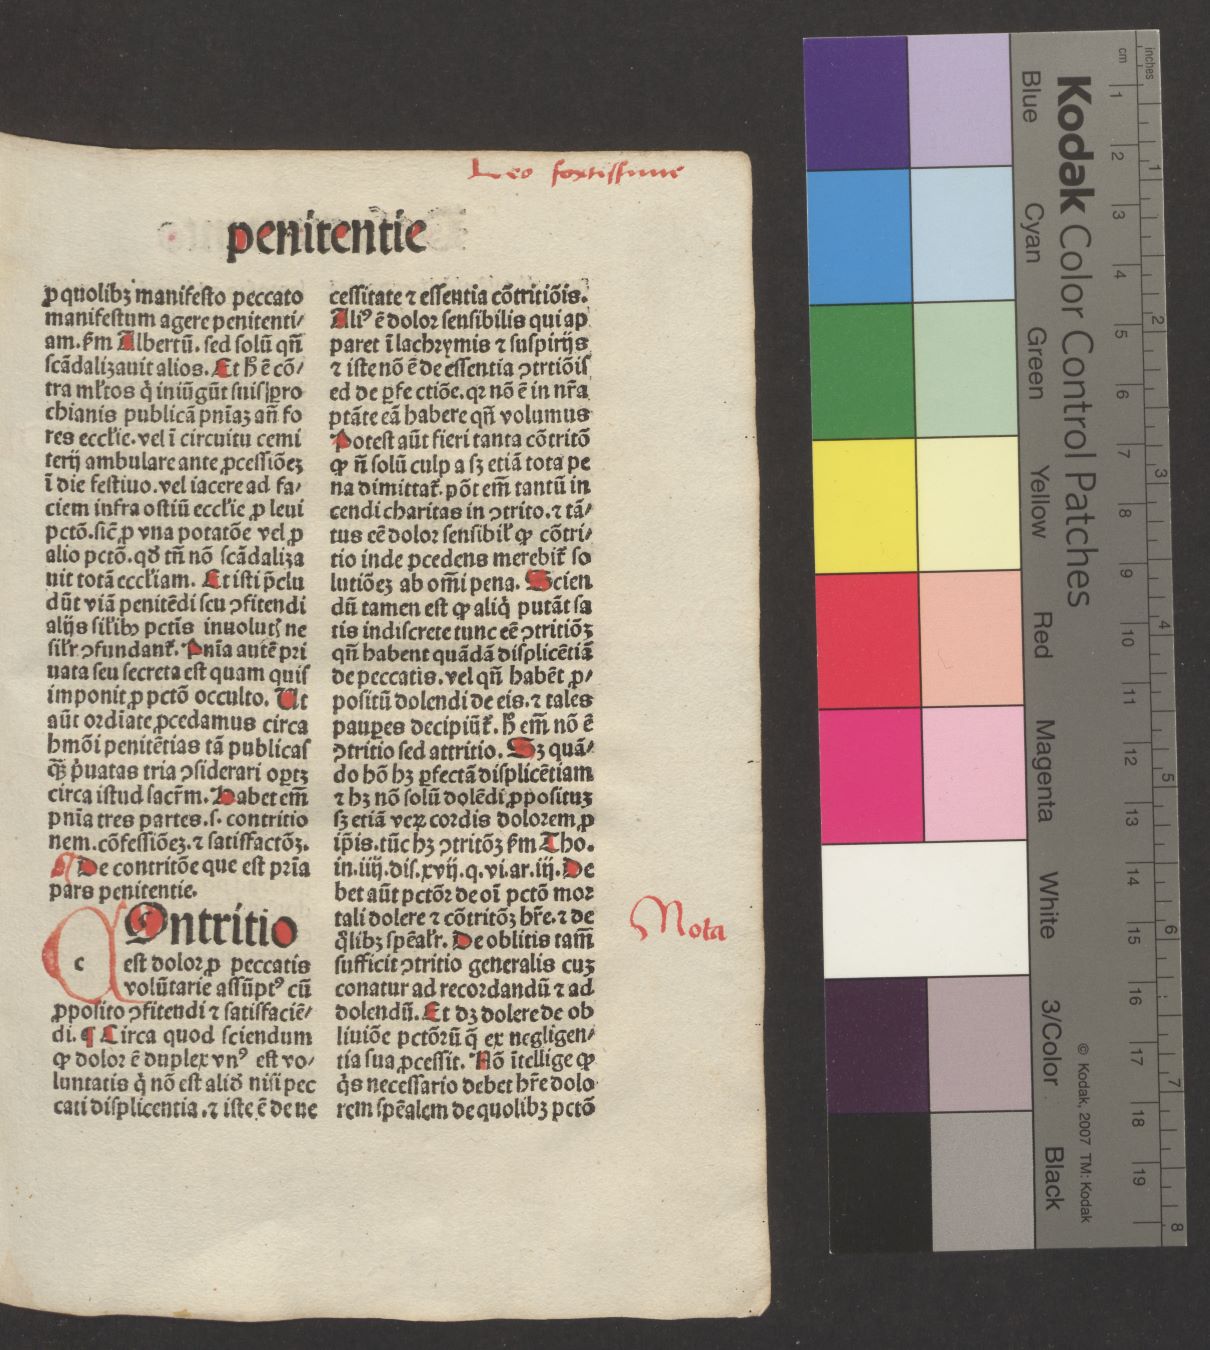 Leo fortissime
penitentie
ꝓ quolibꝫ manifesto peccato
manifestum agere penitenti/
am. ẜm Albertū. sed solū qñ
scādalizauit alios. Et ħ ē cō/
tra mĺtos q̇ iniūgūt suis ꝑro
chianis publicā pniaꝫ añ fo
res ecclīe. vel ī circuitu cemi
terij ambulare ante ꝓcessiōeꝫ
ī die festiuo. vel iacere ad fa/
ciem infra ostiū ecclīe ꝓ leui
pctō. sic̄ ꝓ vna potatōe vel ꝓ
alio pctō. qð tñ nō scādaliza
uit totā eccliam. Et isti p̄clu
dūt viā penitēdi seu ꝯfitendi
alijs silĭbꝰ pctīs inuolutꝭ ne
silŕ ꝯfundant᷑. Pnīa autē pri
uata seu secreta est quam quis
imponit ꝓ pctō occulto. Ut
aūt ordīate ꝓcedamus circa
hmōi penitētias tā publicas
ꝙ̄ ṗuatas tria ꝯsiderari oꝑtꝫ
circa istud sacr̄m. Habet em̄
pnīa tres partes. s. contritio
nem. cōfessiōeꝫ. ⁊ satisfactōꝫ.
¶ De contritōe que est prīa
pars penitentie.
Contritio
c est dolor ꝓ peccatis
voluūtarie assūptꝰ cū
ꝓposito ꝯfitendi ⁊ satisfaciē/
di. ¶ Circa quod sciendum
ꝙ dolor ē duplex vnꝰ est vo/
luntatis q̇ nō est alið nisi pec
cati displicentia. ⁊ iste ē de ne
cessitate ⁊ essentia cōtritiōis.
Aliꝰ ē dolor sensibilis qui ap
paret ī lachrymis ⁊ suspirijs
⁊ iste nō ē de essentia ꝯtrtiōis
ed de ꝑfe ctiōe. qꝛ nō ē in nr̄a
ptāte eā habere qñ volumus
Potest aūt fieri tanta cōtritō
ꝙ ñ solū culp a sꝫ etiā tota pe
na dimittat᷑. pōt em̄ tantū in
cendi charitas in ꝯtrito. ⁊ tā/
tus eē dolor sensibiĺ ꝙ cōtri/
tio inde pcedens merebit᷑ so
lutiōeꝫ ab om̄i pena. Scien
dū tamen est ꝙ aliq̇ putāt sa
tis indiscrete tunc eē ꝯtritiōꝫ
qñ habent quādā displicētiā
de peccatis. vel qñ habēt ꝓ/
positū dolendi de eis. ⁊ tales
pauꝑes decipiūt᷑. ħ em̄ nō ē
ꝯtritio sed attritio. Sꝫ quā/
do hō hꝫ ꝑfectā displicētiam
⁊ hꝫ nō solū dolēdi ꝓposituꝫ
sꝫ etiā veꝝ cordis dolorem ꝓ
ip̄is. tūc hꝫ ꝯtritōꝫ ẜm Tho.
in. iiij. dis. xvij. q. vi. ar. iij. De
bet aūt pctōr de oī pctō mor
tali dolere ⁊ cōtritōꝫ hr̄e. ⁊ de
q̇libꝫ spēaĺr. De oblitis tam̄
sufficit ꝯtritio generalis cuꝫ
conatur ad recordandū ⁊ ad
dolendū. Et dꝫ dolere de ob
liuiōe pctōrū q̄ ex negligen/
tia sua ꝓcessit. Nō ītellige ꝙ
q̇s necessario debet hr̄e dolo
rem spēalem de quolibꝫ pctō
Nota
Kodak Color Control Patches
inches
cm
1 2 3 4 5 6 7 8 9 10 11 12 13 14 15 16 17 18 19
1 2 3 4 5 6 7 8
Blue
Cyan
Green
Yellow
Red
Magenta
White
3/Color
Black
© Kodak, 2007 TM: Kodak